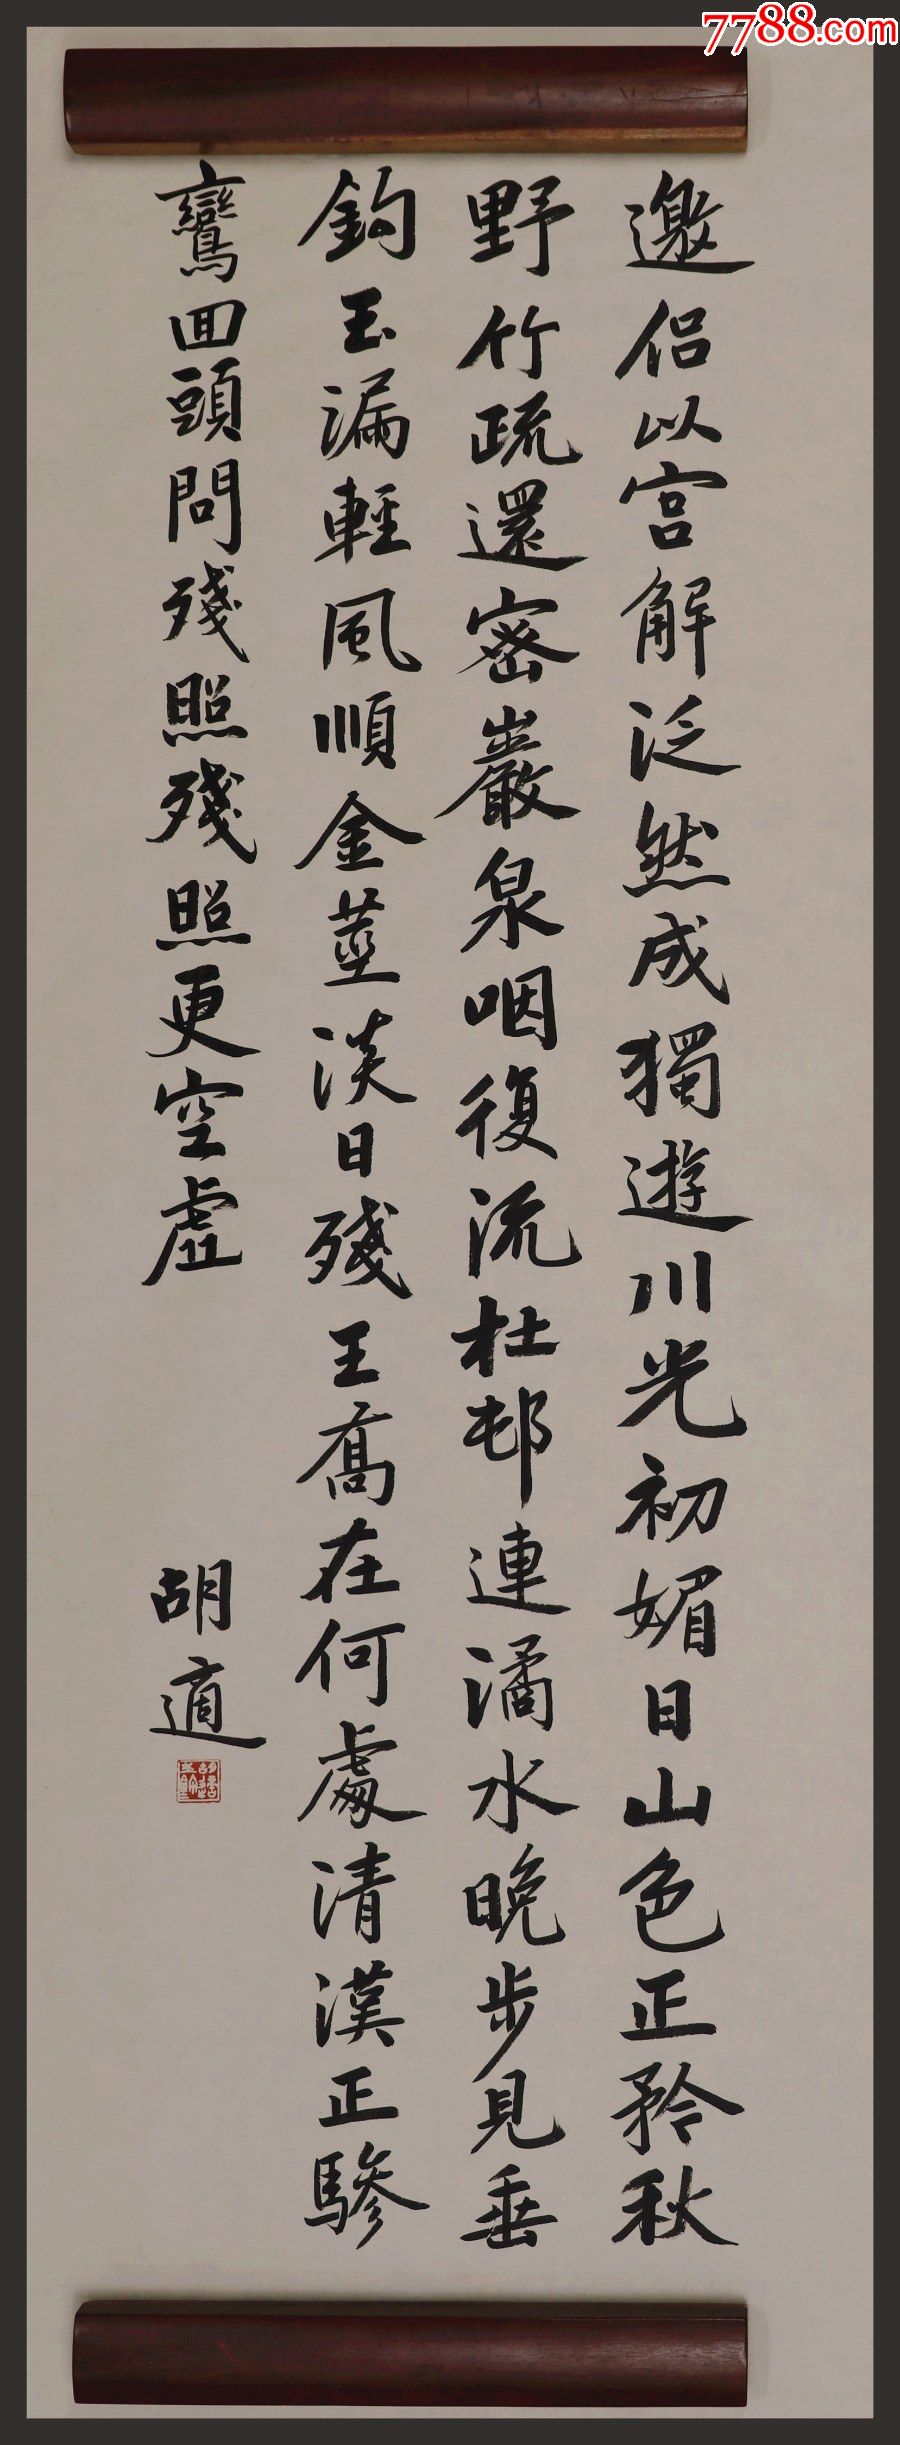 7788.com
邀侣以宫解泛然成獨遊川光初媚日山色正矜秋
野竹疏還密巖泉咽復流杜邨連潏水晚步見垂
鈎玉漏輕風順金莖淡日殘王喬在何處清漢正驂
鸞回頭問殘照殘照更空虛
胡適